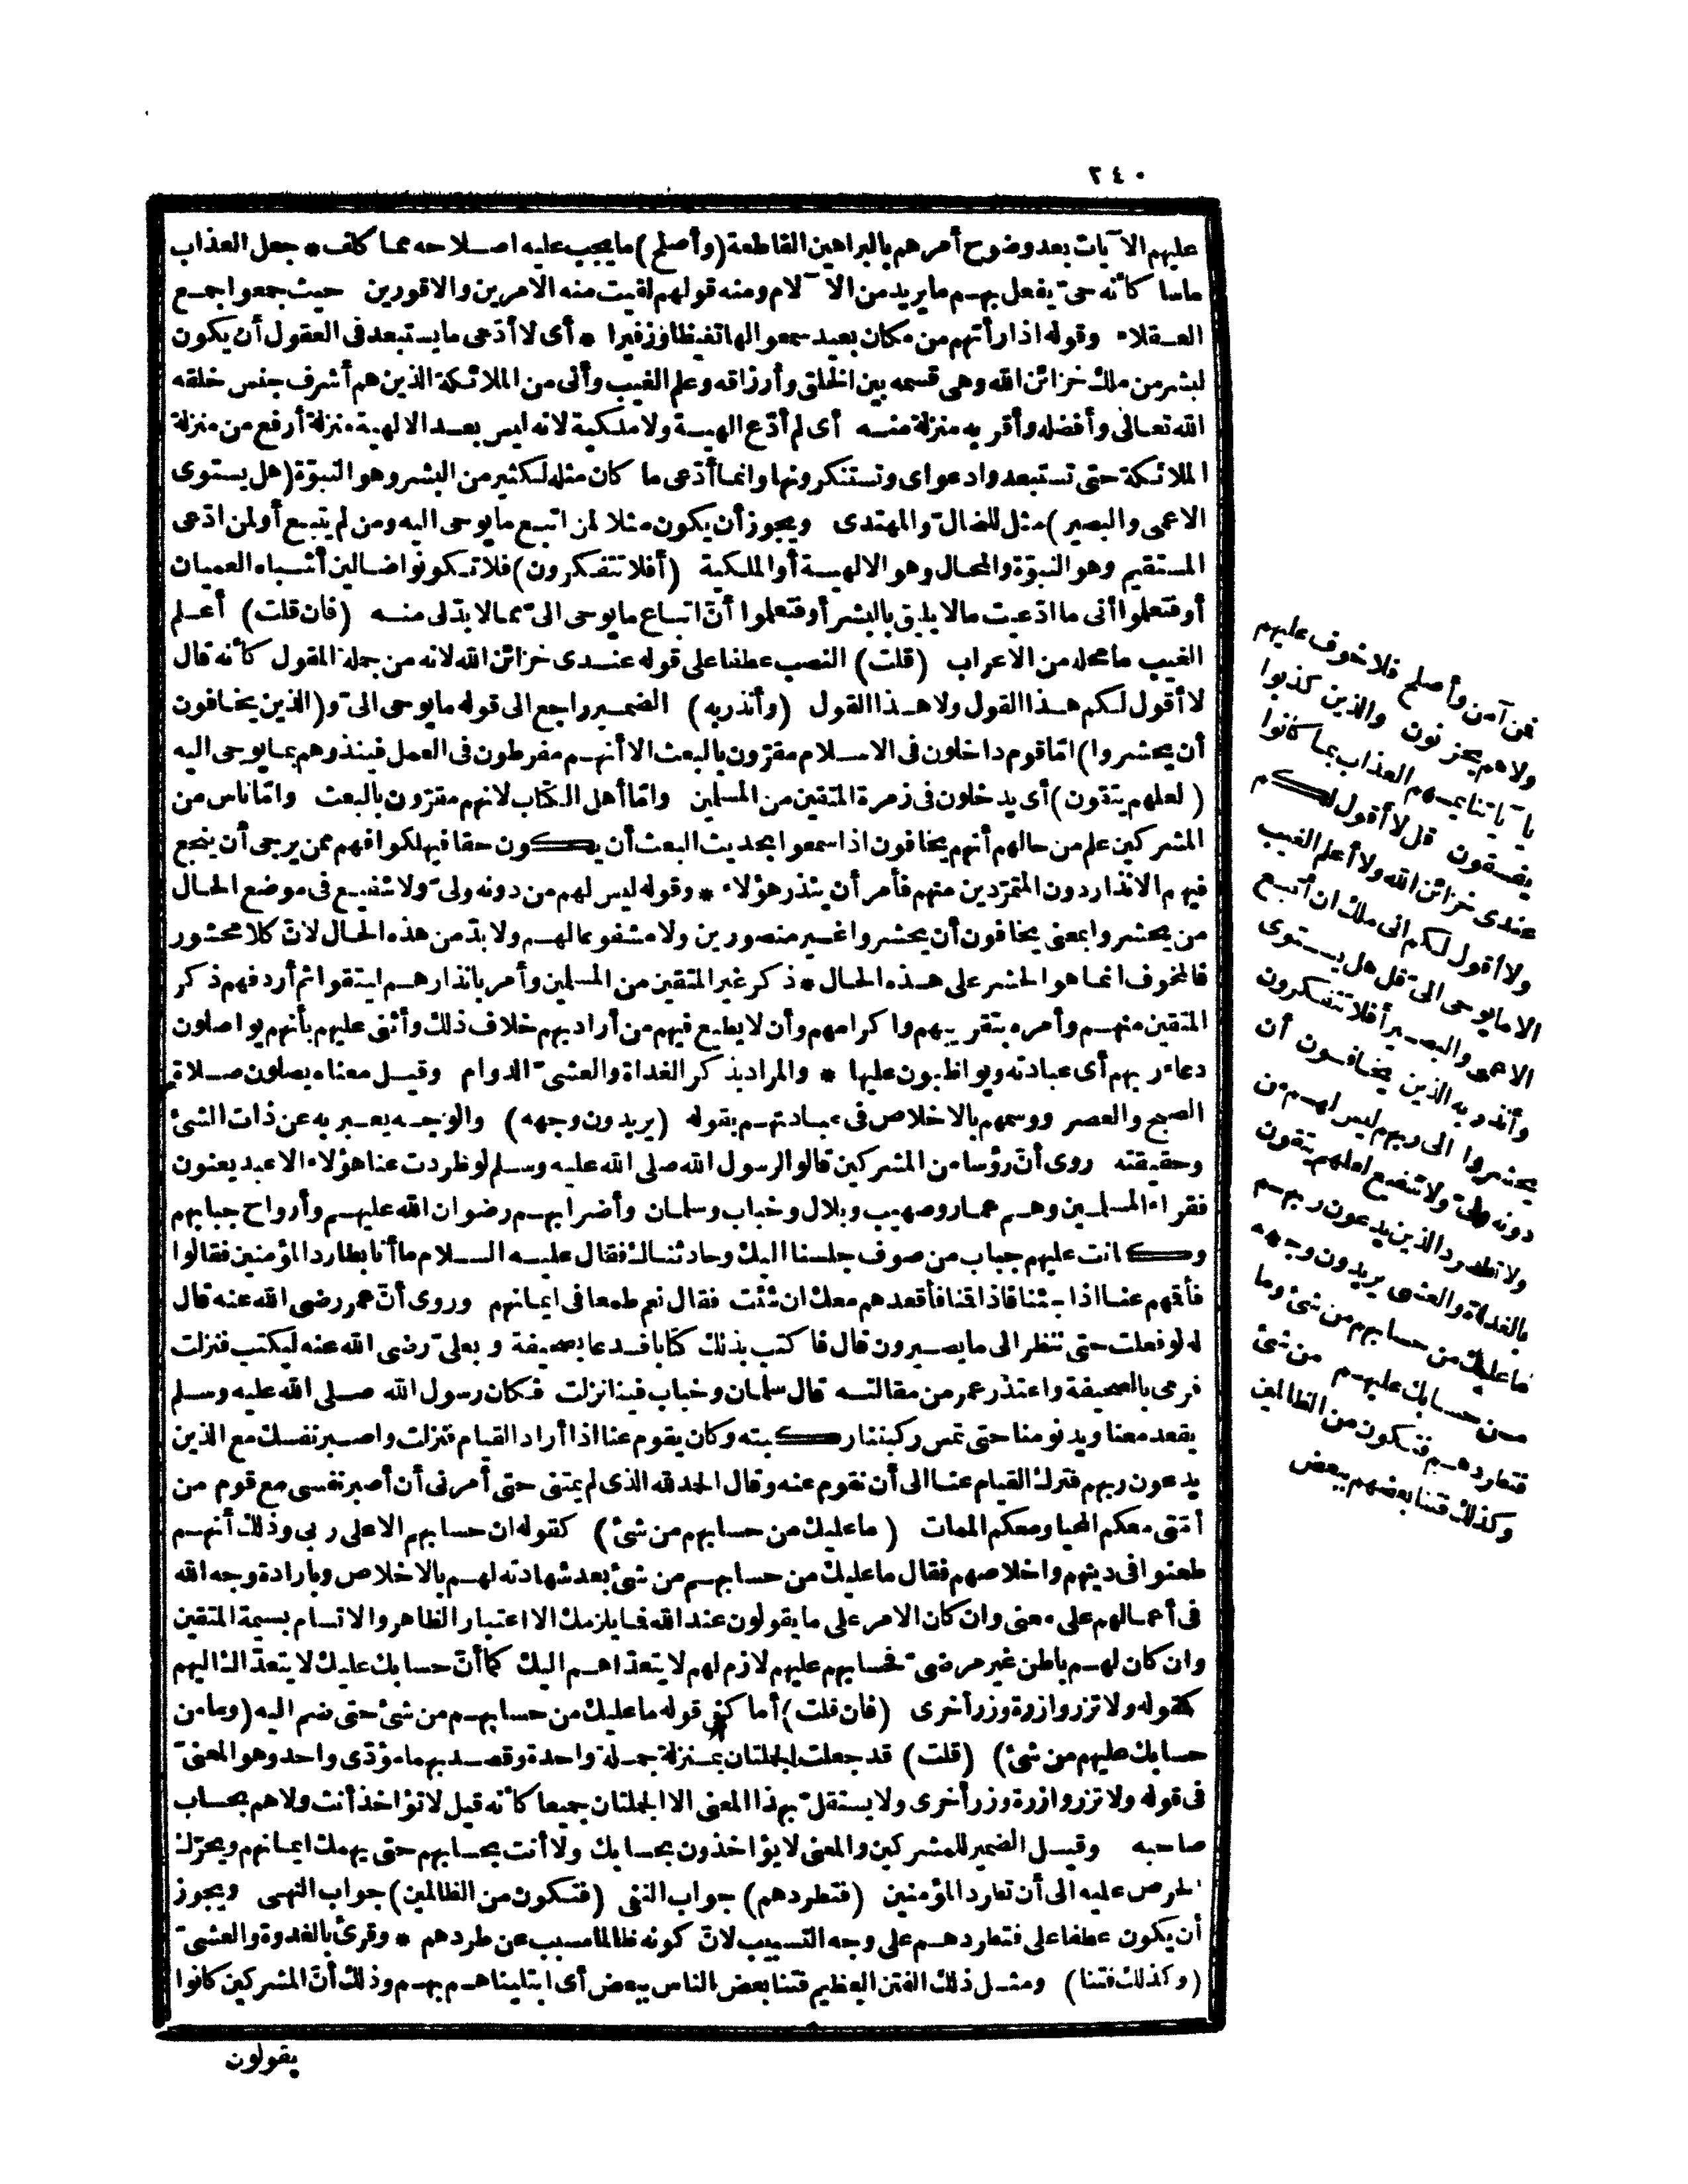 ٢٤٠
عليهم الآيات بعد وضوح أمرهم بالبراهين القاطعة (وأصلح) ما يجب عليه اصلاحه مما كلف * جعل العذاب
ماسا كأنه حىّ يفعل بهم ما يريد من الآلام ومنه قولهم لقيت منه الامرين والاقورين حيث جمعوا جمع
العقلاء وقوله اذا رأتهم من مكان بعيد سمعوا لها تغيظا وزفيرا * أى لا أدّعى ما يستبعد فى العقول أن يكون
لبشر من ملك خزائن الله وهى قسمه بين الخلق وأرزاقه وعلم الغيب وأنى من الملائكة الذين هم أشرف جنس خلقه
الله تعالى وأفضله وأقربه منزلة منه أى لم أدّع الهية ولا ملكية لانه ليس بعد الالهية منزلة أرفع من منزلة
الملائكة حتى تستبعدوا دعواى وتستنكرونها وانما أدّعى ما كان مثله لكثير من البشر وهو النبوّة (هل يستوى
الاعمى والبصير) مثل للضالّ والمهتدى ويجوز أن يكون مثلا لمن اتبع ما يوحى اليه ومن لم يتبع أو لمن ادّعى
المستقيم وهو النبوّة والمحال وهو الالهية أو الملكية (أفلا تتفكرون) فلا تكونوا ضالين أشباه العميان
أو فتعلموا أنى ما ادّعيت ما لا يليق بالبشر أو فتعلموا أنّ اتباع ما يوحى الىّ مما لا بدّ لى منه (فان قلت) أعلم
الغيب ما محله من الاعراب (قلت) النصب عطفا على قوله عندى خزائن الله لانه من جملة المقول كأنه قال
لا أقول لكم هذا القول ولا هذا القول (وأنذر به) الضمير راجع الى قوله ما يوحى الىّ و(الذين يخافون
أن يحشروا) امّا قوم داخلون فى الاسلام مقرّون بالبعث الا أنهم مفرطون فى العمل فينذرهم بما يوحى اليه
(لعلهم يتقون) أى يدخلون فى زمرة المتقين من المسلمين وامّا أهل الكتاب لانهم مقرّون بالبعث وامّا ناس من
المشركين علم من حالهم أنهم يخافون اذا سمعوا بحديث البعث أن يكون حقا فيهلكوا فهم ممن يرجى أن ينجع
فيهم الانذار دون المتمرّدين منهم فأمر أن ينذر هؤلاء * وقوله ليس لهم من دونه ولىّ ولا شفيع فى موضع الحال
من يحشروا بمعنى يخافون أن يحشروا غير منصورين ولا مشفوعا لهم ولا بدّ من هذه الحال لانّ كلا محشور
فالمخوف انما هو الحشر على هذه الحال * ذكر غير المتقين من المسلمين وأمر بانذارهم ليتقوا ثم أردفهم ذكر
المتقين منهم وأمره بتقريبهم واكرامهم وأن لا يطيع فيهم من أراد بهم خلاف ذلك وأثنى عليهم بأنهم يواصلون
دعاء ربهم أى عبادته ويواظبون عليها * والمراد بذكر الغداة والعشىّ الدوام وقيل معناه يصلون صلاة
الصبح والعصر ووسمهم بالاخلاص فى عبادتهم بقوله (يريدون وجهه) والوجه يعبر به عن ذات الشئ
وحقيقته روى أنّ رؤساء من المشركين قالوا لرسول الله صلى الله عليه وسلم لو طردت عنا هؤلاء الاعبد يعنون
فقراء المسلمين وهم عمار وصهيب وبلال وخباب وسلمان وأضرابهم رضوان الله عليهم وأرواح جبابهم
وكانت عليهم جباب من صوف جلسنا اليك وحادثناك فقال عليه السلام ما أنا بطارد المؤمنين فقالوا
فأقمهم عنا اذا جئنا فاذا قمنا فأقعدهم معك ان شئت فقال نعم طمعا فى ايمانهم وروى أنّ عمر رضى الله عنه قال
له لو فعلت حتى ننظر الى ما يصيرون قال فاكتب بذلك كتابا فدعا بصحيفة وبعلىّ رضى الله عنه ليكتب فنزلت
فرمى بالصحيفة واعتذر عمر من مقالته قال سلمان وخباب فينا نزلت فكان رسول الله صلى الله عليه وسلم
يقعد معنا ويدنو منا حتى تمس ركبتنا ركبته وكان يقوم عنا اذا أراد القيام فنزلت واصبر نفسك مع الذين
يدعون ربهم فترك القيام عنا الى أن نقوم عنه وقال الحمد لله الذى لم يمتنى حتى أمرنى أن أصبر نفسى مع قوم من
أمّتى معكم المحيا ومعكم الممات (ما عليك من حسابهم من شئ) كقوله ان حسابهم الا على ربى وذلك أنهم
طعنوا فى دينهم واخلاصهم فقال ما عليك من حسابهم من شئ بعد شهادته لهم بالاخلاص وبارادة وجه الله
فى أعمالهم على معنى وان كان الامر على ما يقولون عند الله فما يلزمك الا اعتبار الظاهر والاتسام بسيمة المتقين
وان كان لهم باطن غير مرضىّ فحسابهم عليهم لازم لهم لا يتعدّاهم اليك كما أنّ حسابك عليك لا يتعدّاك اليهم
كقوله ولا تزر وازرة وزر أخرى (فان قلت) أما كفى قوله ما عليك من حسابهم من شئ حتى ضم اليه (وما من
حسابك عليهم من شئ) (قلت) قد جعلت الجملتان بمنزلة جملة واحدة وقصد بهما مؤدّى واحد وهو المعنىّ
فى قوله ولا تزر وازرة وزر أخرى ولا يستقلّ بهذا المعنى الا الجملتان جميعا كأنه قيل لا تؤاخذ أنت ولا هم بحساب
صاحبه وقيل الضمير للمشركين والمعنى لا يؤاخذون بحسابك ولا أنت بحسابهم حتى يهمك ايمانهم ويحرّك
الحرص عليه الى أن تطرد المؤمنين (فتطردهم) جواب النفى (فتكون من الظالمين) جواب النهى ويجوز
أن يكون عطفا على فتطردهم على وجه التسبيب لانّ كونه ظالما مسبب عن طردهم * وقرئ بالغدوة والعشىّ
(وكذلك فتنا) ومثل ذلك الفتن العظيم فتنا بعض الناس ببعض أى ابتليناهم بهم وذلك أنّ المشركين كانوا
يقولون
فمن آمن وأصلح فلا خوف عليهم
ولا هم يحزنون والذين كذبوا
بآياتنا يمسهم العذاب بما كانوا
يفسقون قل لا أقول لكم
عندى خزائن الله ولا أعلم الغيب
ولا أقول لكم انى ملك ان أتبع
الا ما يوحى الىّ قل هل يستوى
الاعمى والبصير أفلا تتفكرون
وأنذر به الذين يخافون أن
يحشروا الى ربهم ليس لهم من
دونه ولىّ ولا شفيع لعلهم يتقون
ولا تطرد الذين يدعون ربهم
بالغداة والعشى يريدون وجهه
ما عليك من حسابهم من شئ وما
من حسابك عليهم من شئ
فتطردهم فتكون من الظالمين
وكذلك فتنا بعضهم ببعض